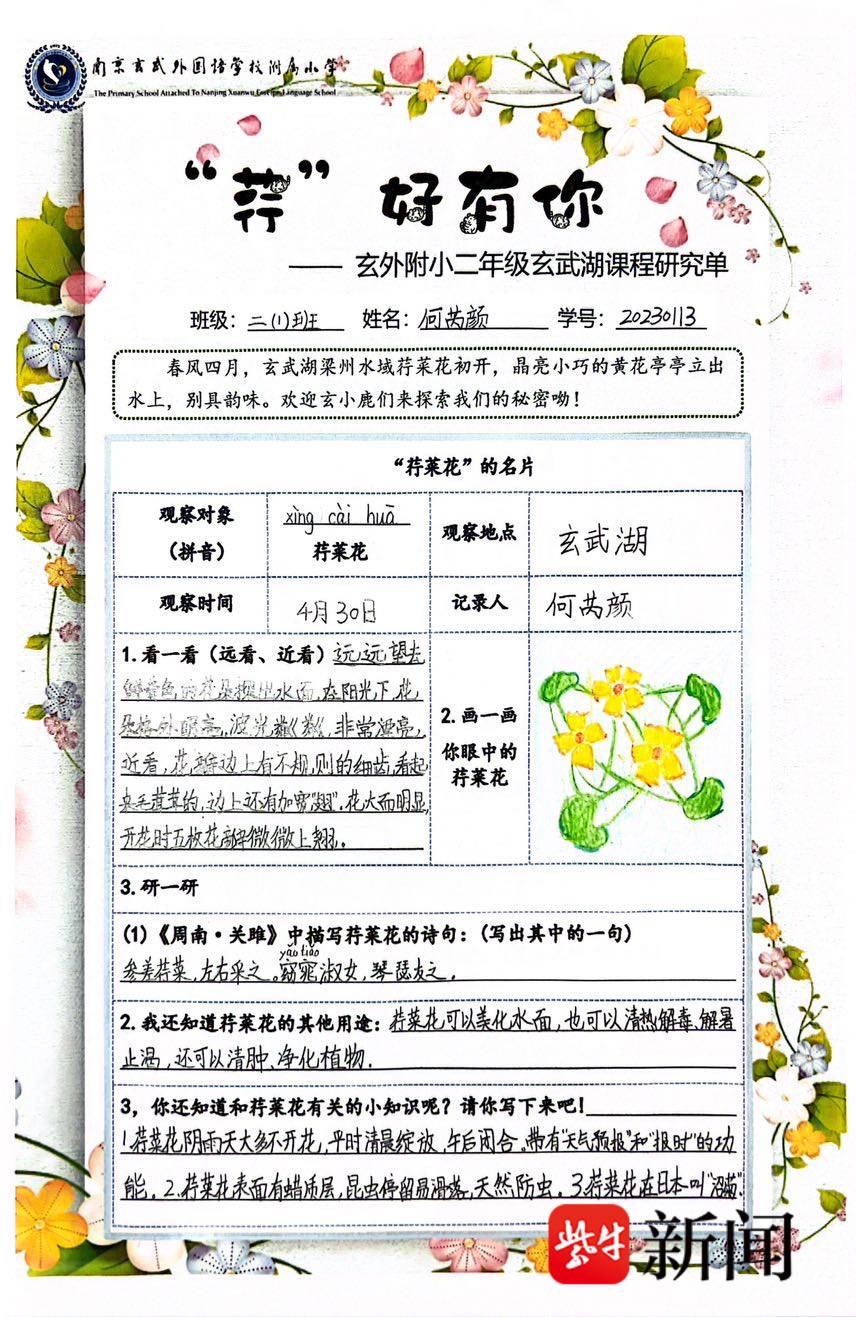 南京玄武外国语学校附属小学
The Primary School Attached To Nanjing Xuanwu Foreign Language School
“荇” 好有你
—— 玄外附小二年级玄武湖课程研究单
班级：二(1)班 姓名：何芮颜 学号：20230113
春风四月，玄武湖梁州水域荇菜花初开，晶亮小巧的黄花亭亭立出
水上，别具韵味。欢迎玄小鹿们来探索我们的秘密呦！
“荇菜花”的名片
观察对象
（拼音）
xìng cài huā
荇菜花
观察地点
玄武湖
观察时间
4月30日
记录人
何芮颜
1.看一看（远看、近看）远远望去
色的花朵 出水面，在阳光下，花
朵格外明亮，波光粼粼，非常漂亮，
近看，花瓣边上有不规则的细齿，看起
来毛茸茸的，边上还有加宽“翅”，花大而明显，
开花时五枚花瓣微微上翘。
2.画一画
你眼中的
荇菜花
3.研一研
(1)《周南·关雎》中描写荇菜花的诗句：（写出其中的一句）
yǎo tiǎo
参差荇菜，左右采之。窈窕淑女，琴瑟友之。
2.我还知道荇菜花的其他用途：荇菜花可以美化水面，也可以清热解毒、解暑
止渴，还可以清肿、净化植物.
3，你还知道和荇菜花有关的小知识呢？请你写下来吧！
1.荇菜花阴雨天大多不开花，平时清晨绽放，午后闭合。带有“天气预报”和“报时”的功
能。2.荇菜花表面有蜡质层，昆虫停留易滑落，天然防虫。3.荇菜花在日本叫“沼菊”.
紫牛 新闻